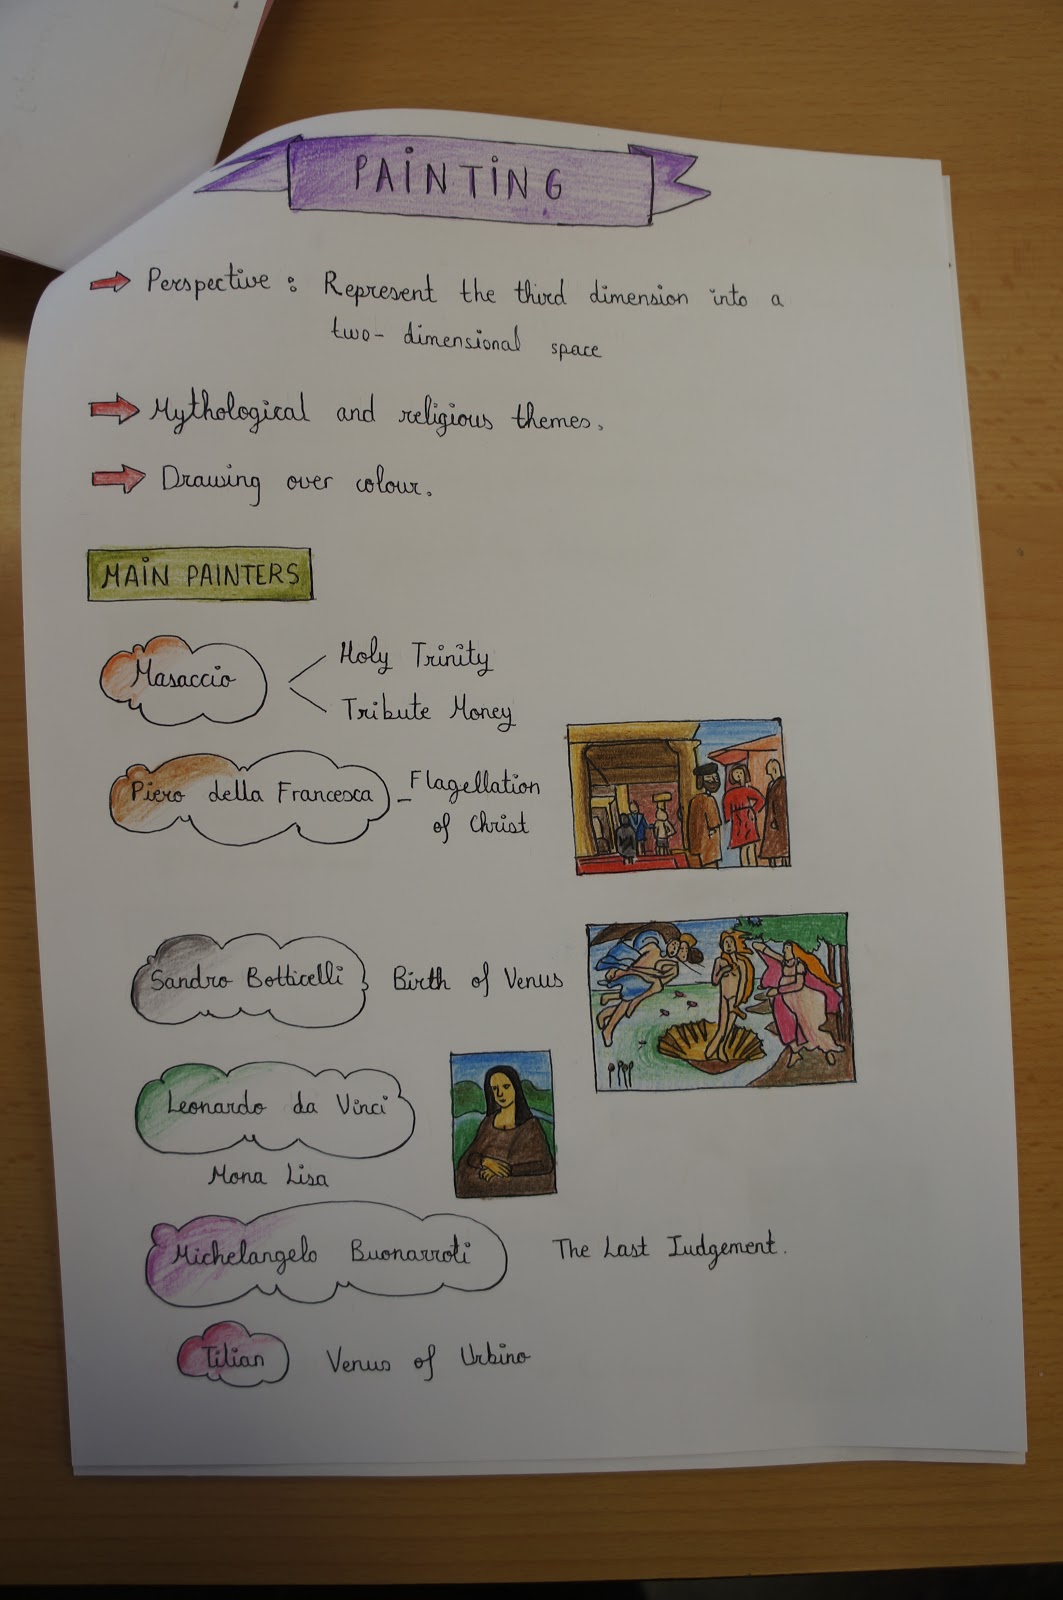 PAINTING
Perspective: Represent the third dimension into a
two-dimensional space
Mythological and religious themes.
Drawing over colour.
MAIN PAINTERS
Masaccio
Holy Trinity
Tribute Money
Piero della Francesca - Flagellation
of Christ
Sandro Botticelli Birth of Venus
Leonardo da Vinci
Mona Lisa
Michelangelo Buonarroti The Last Judgement.
Titian Venus of Urbino